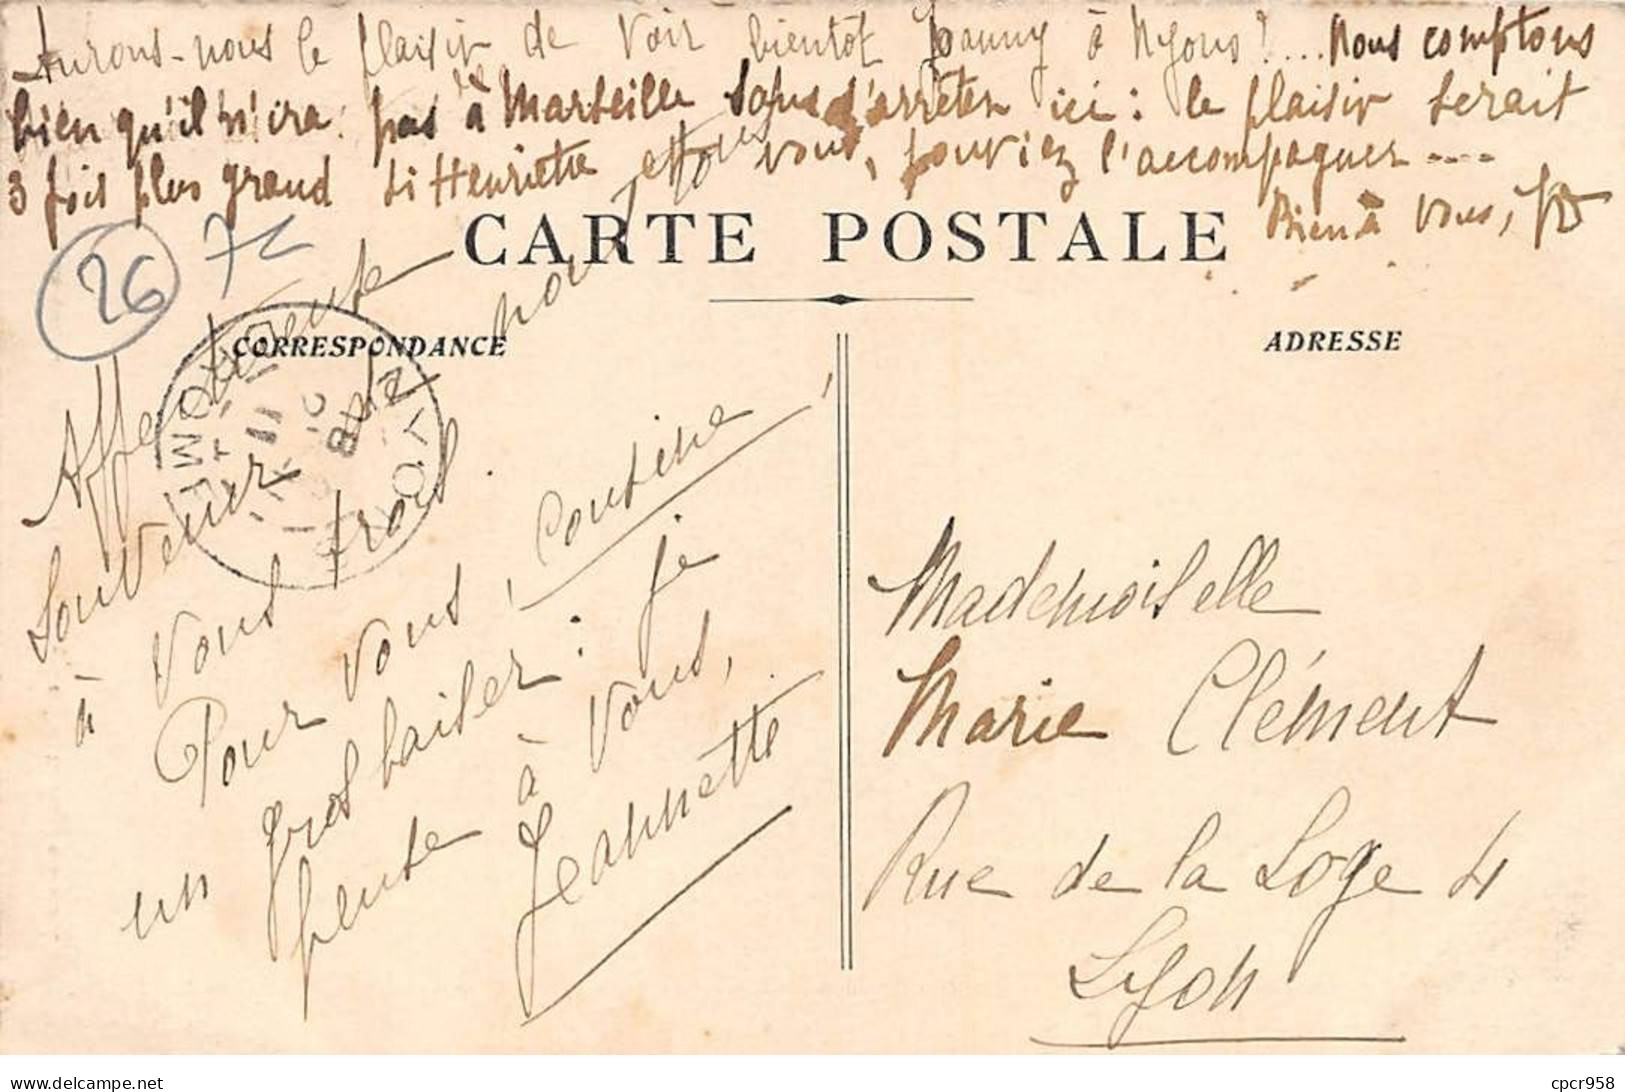 Aurons-nous le plaisir de voir bientôt Joanny à Nyons ?.... Nous comptons
bien qu'il n'ira pas à Marseille sans s'arrêter ici : le plaisir serait
3 fois plus grand si Henriette et vous, pouviez l'accompagner ----
Bien à vous,
26
CARTE POSTALE
CORRESPONDANCE
ADRESSE
Affectueux
Souvenir
à vous trois.
Pour vous, cousine,
un gros baiser : je
pense à vous,
Jeannette
LYON
Mademoiselle
Marie Clément
Rue de la Loge 4
Lyon
delcampe.net
cpcr958